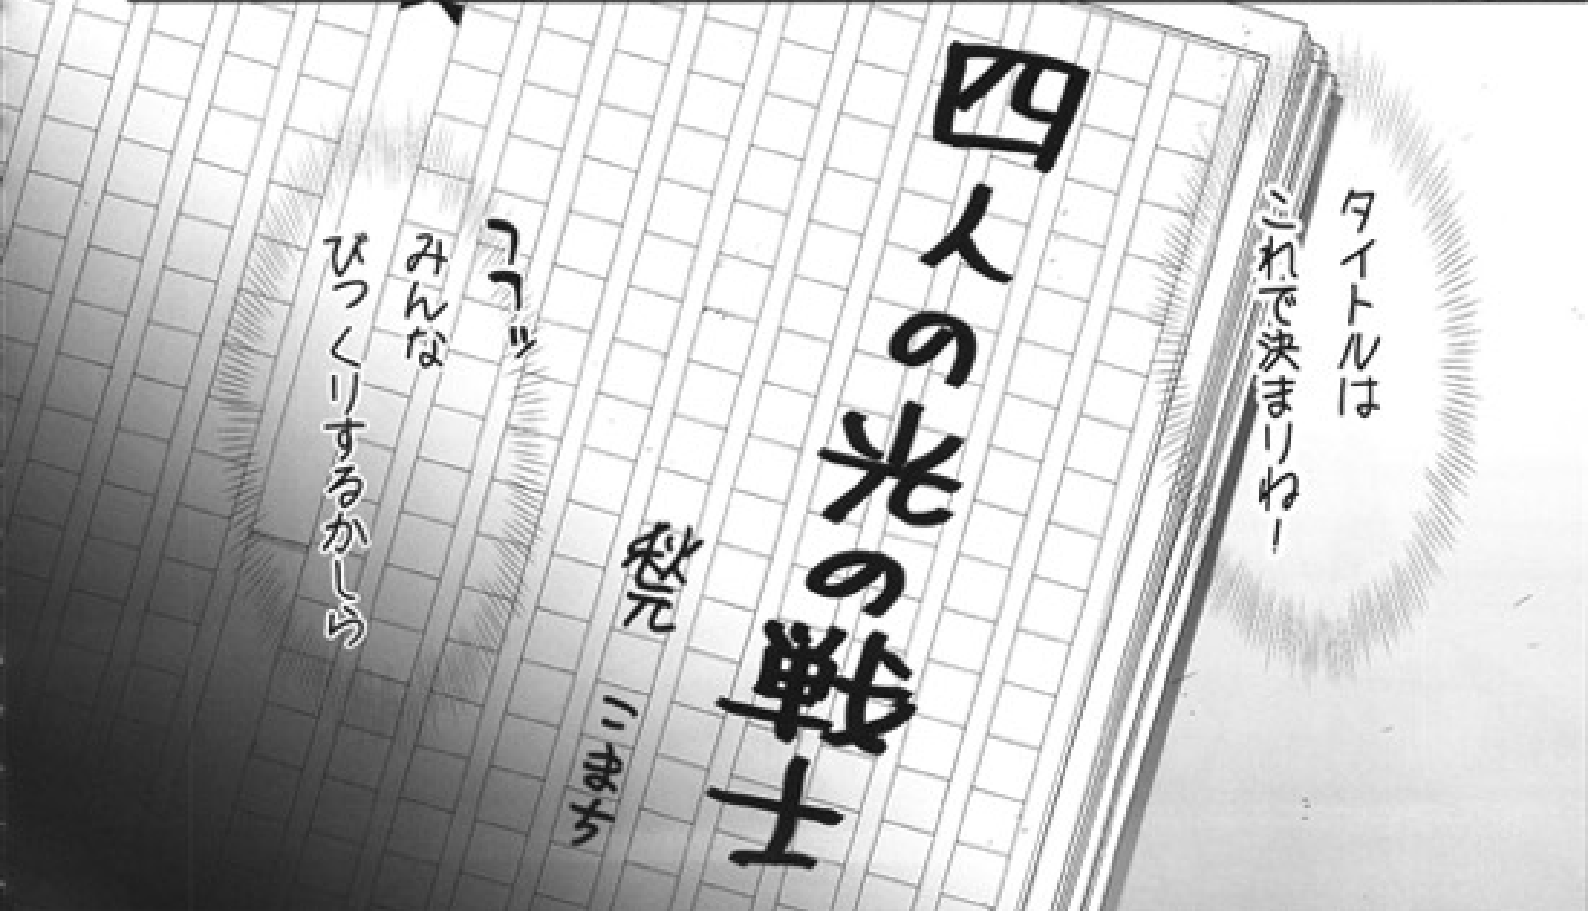 タイトルは
これで決まりね!
四人の光の戦士
秋元 こまち
フフッ
みんな
びっくりするかしら